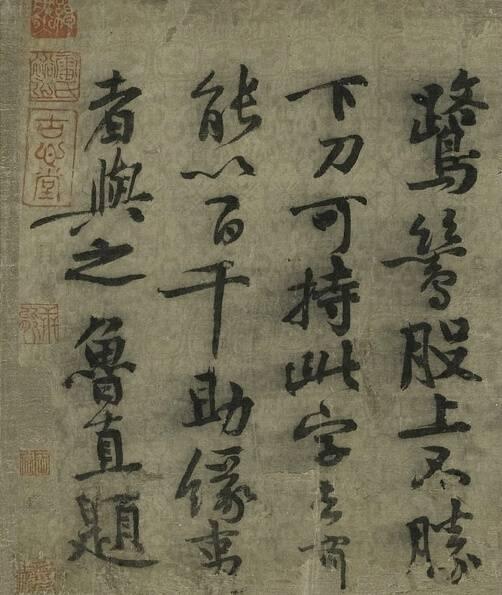 鷺鷥股上不勝
下刀可持此字去有
能以百千助緣事
者與之 魯直題